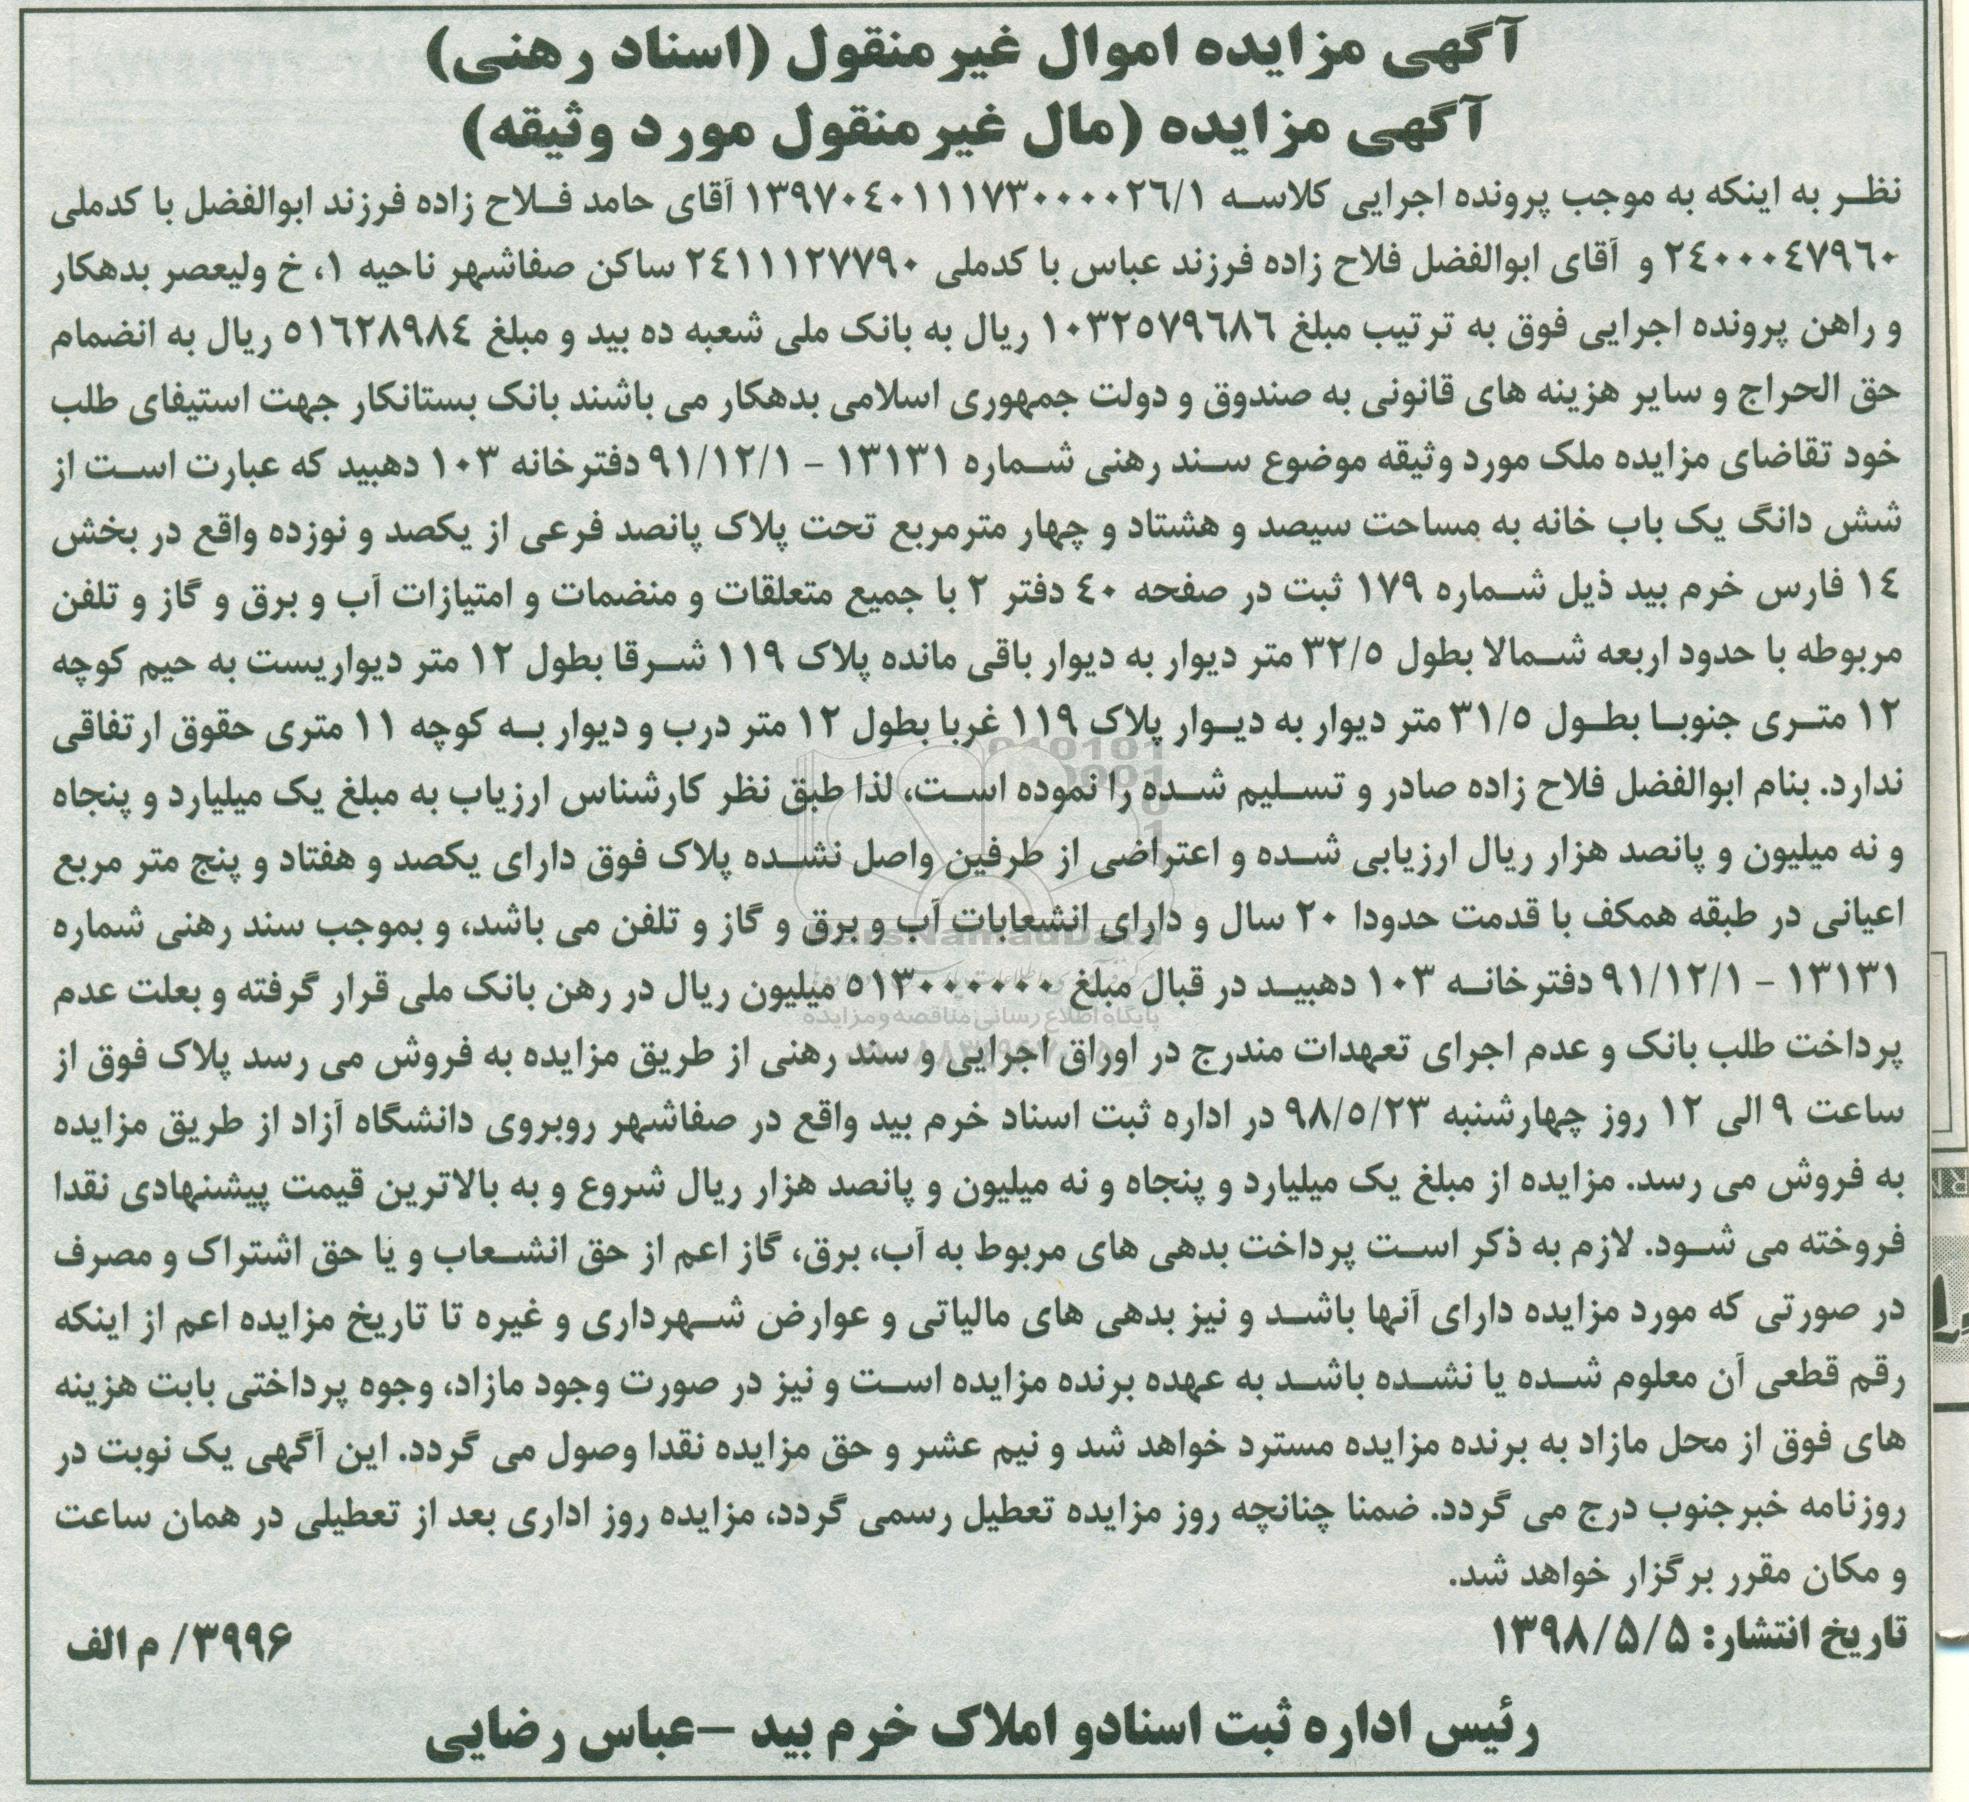 آگهی مزایده اموال غیر منقول (اسناد رهنی)
آگهی مزایده (مال غیر منقول مورد وثیقه)
نظر به اینکه به موجب پرونده اجرایی کلاسه ۱۳۹۷۰۴۰۱۱۱۷۳۰۰۰۰۲۶/۱ آقای حامد فلاح زاده فرزند ابوالفضل با کدملی
۲۴۰۰۰۴۷۹۶۰ و آقای ابوالفضل فلاح زاده فرزند عباس با کدملی ۲۴۱۱۱۲۷۷۹۰ ساکن صفاشهر ناحیه ۱، خ ولیعصر بدهکار
و راهن پرونده اجرایی فوق به ترتیب مبلغ ۱۰۳۲۵۷۹۶۸۶ ریال به بانک ملی شعبه ده بید و مبلغ ۵۱۶۲۸۹۸۴ ریال به انضمام
حق الحراج و سایر هزینه های قانونی به صندوق و دولت جمهوری اسلامی بدهکار می باشند بانک بستانکار جهت استیفای طلب
خود تقاضای مزایده ملک مورد وثیقه موضوع سند رهنی شماره ۱۳۱۳۱ - ۹۱/۱۲/۱ دفترخانه ۱۰۳ دهبید که عبارت است از
شش دانگ یک باب خانه به مساحت سیصد و هشتاد و چهار مترمربع تحت پلاک پانصد فرعی از یکصد و نوزده واقع در بخش
۱۴ فارس خرم بید ذیل شماره ۱۷۹ ثبت در صفحه ۴۰ دفتر ۲ با جمیع متعلقات و منضمات و امتیازات آب و برق و گاز و تلفن
مربوطه با حدود اربعه شمالا بطول ۳۲/۵ متر دیوار به دیوار باقی مانده پلاک ۱۱۹ شرقا بطول ۱۲ متر دیواریست به حیم کوچه
۱۲ متری جنوبا بطول ۳۱/۵ متر دیوار به دیوار پلاک ۱۱۹ غربا بطول ۱۲ متر درب و دیوار به کوچه ۱۱ متری حقوق ارتفاقی
ندارد. بنام ابوالفضل فلاح زاده صادر و تسلیم شده را نموده است، لذا طبق نظر کارشناس ارزیاب به مبلغ یک میلیارد و پنجاه
و نه میلیون و پانصد هزار ریال ارزیابی شده و اعتراضی از طرفین واصل نشده پلاک فوق دارای یکصد و هفتاد و پنج متر مربع
اعیانی در طبقه همکف با قدمت حدودا ۲۰ سال و دارای انشعابات آب و برق و گاز و تلفن می باشد، و بموجب سند رهنی شماره
۱۳۱۳۱ - ۹۱/۱۲/۱ دفترخانه ۱۰۳ دهبید در قبال مبلغ ۵۱۳۰۰۰۰۰۰ میلیون ریال در رهن بانک ملی قرار گرفته و بعلت عدم
پرداخت طلب بانک و عدم اجرای تعهدات مندرج در اوراق اجرایی و سند رهنی از طریق مزایده به فروش می رسد پلاک فوق از
ساعت ۹ الی ۱۲ روز چهارشنبه ۹۸/۵/۲۳ در اداره ثبت اسناد خرم بید واقع در صفاشهر روبروی دانشگاه آزاد از طریق مزایده
به فروش می رسد. مزایده از مبلغ یک میلیارد و پنجاه و نه میلیون و پانصد هزار ریال شروع و به بالاترین قیمت پیشنهادی نقدا
فروخته می شود. لازم به ذکر است پرداخت بدهی های مربوط به آب، برق، گاز اعم از حق انشعاب و یا حق اشتراک و مصرف
در صورتی که مورد مزایده دارای آنها باشد و نیز بدهی های مالیاتی و عوارض شهرداری و غیره تا تاریخ مزایده اعم از اینکه
رقم قطعی آن معلوم شده یا نشده باشد به عهده برنده مزایده است و نیز در صورت وجود مازاد، وجوه پرداختی بابت هزینه
های فوق از محل مازاد به برنده مزایده مسترد خواهد شد و نیم عشر و حق مزایده نقدا وصول می گردد. این آگهی یک نوبت در
روزنامه خبرجنوب درج می گردد. ضمنا چنانچه روز مزایده تعطیل رسمی گردد، مزایده روز اداری بعد از تعطیلی در همان ساعت
و مکان مقرر برگزار خواهد شد.
تاریخ انتشار: ۱۳۹۸/۵/۵
۳۹۹۶/ م الف
رئیس اداره ثبت اسنادو املاک خرم بید –عباس رضایی
پایگاه اطلاع رسانی مناقصه و مزایده